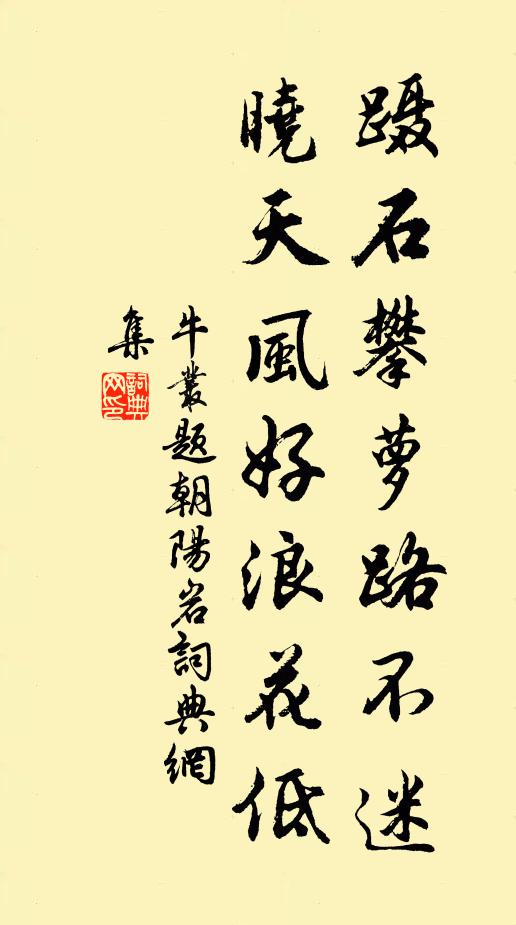 蹑石攀萝路不迷
曉天風好浪花低
牛叢题朝陽岩詞典網
集
詞典
网印